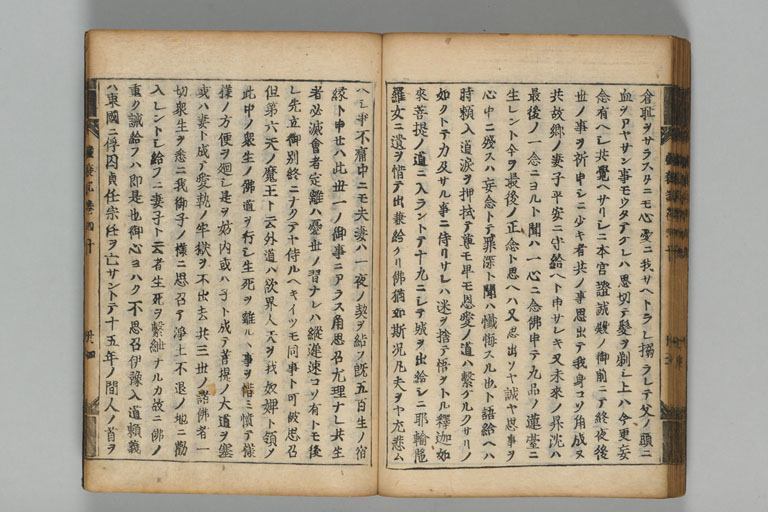 倉恥ヲサラスサニモ心憂ニ我サヘトラレ搦ラレテ父ノ頭ニ
血ヲアヤサン事モウタテケレハ思切テ髪ヲ剃シ上ハ今更妄
念有ヘシ共覺ヘサリシニ本宮證誠殿ノ御前ニテ終夜後
世ノ事ヲ祈申シニ少キ者共ノ事思出テ我身コソ角成ヌ
共故郷ノ妻子平安ニ守給ヘト申サレキ又未來ノ昇沈ハ
最後ノ一念ニヨルト聞ハ一心ニ念佛申テ九品ノ蓮臺ニ
生レント今ヲ最後ノ正念ト思ヘハ又思出ソヤ誠ヤ思事ヲ
心中ニ殘スハ妄念トテ罪深ト聞ハ懺悔スル也ト語給ヘハ
時頼入道涙ヲ押拭テ尊モ卑モ恩愛ノ道ハ繋グルクサリノ
如クトテ力及サル事ニ侍リサレハ迷ヲ捨テ悟ヲトル釋迦如
來菩提ノ道ニ入ラントテ十九ニシテ城ヲ出給シニ耶輸陁
羅女ニ遺ヲ惜テ出兼給ケリ佛猶如斯況凡夫ヲヤ充悲ム
ヘシ事不痛中ニモ夫妻ハ一夜ノ契ヲ結フ既五百生ノ宿
縁ト申セハ此世一ノ御事ニアラス角思召尤理ナレ共生
者必滅會者定離ハ憂世ノ習ナレハ縦遲速コソ有トモ後
レ先立御別終ニナクテヤ侍ルヘキイツモ同事ト可被思召
但第六天ノ魔王ト云外道ハ欲界人天ヲ我奴婢ト領ノ
此中ノ衆生ノ佛道ヲ行シ生死ヲ離ルヽ事ヲ惜ミ憤テ様
様ノ方便ヲ廻シ是ヲ妨内或ハ子ト成テ菩提ノ大道ヲ塞
或ハ妻ト成テ愛執ノ牢獄ヲ不出去共三世ノ諸佛者一
切衆生ヲ悉ニ我御子ノ様ニ思召テ淨土不退ノ地ニ勸
入レントシ給フニ妻子ト云者生死ヲ繋紲ナルカ故ニ佛ノ
重ク誡給フハ即是也御心ヨハク不思召伊豫入道頼義
ハ東國ニ俘囚貞任宗任ヲ亡サントテ十五年ノ間人ノ首ヲ